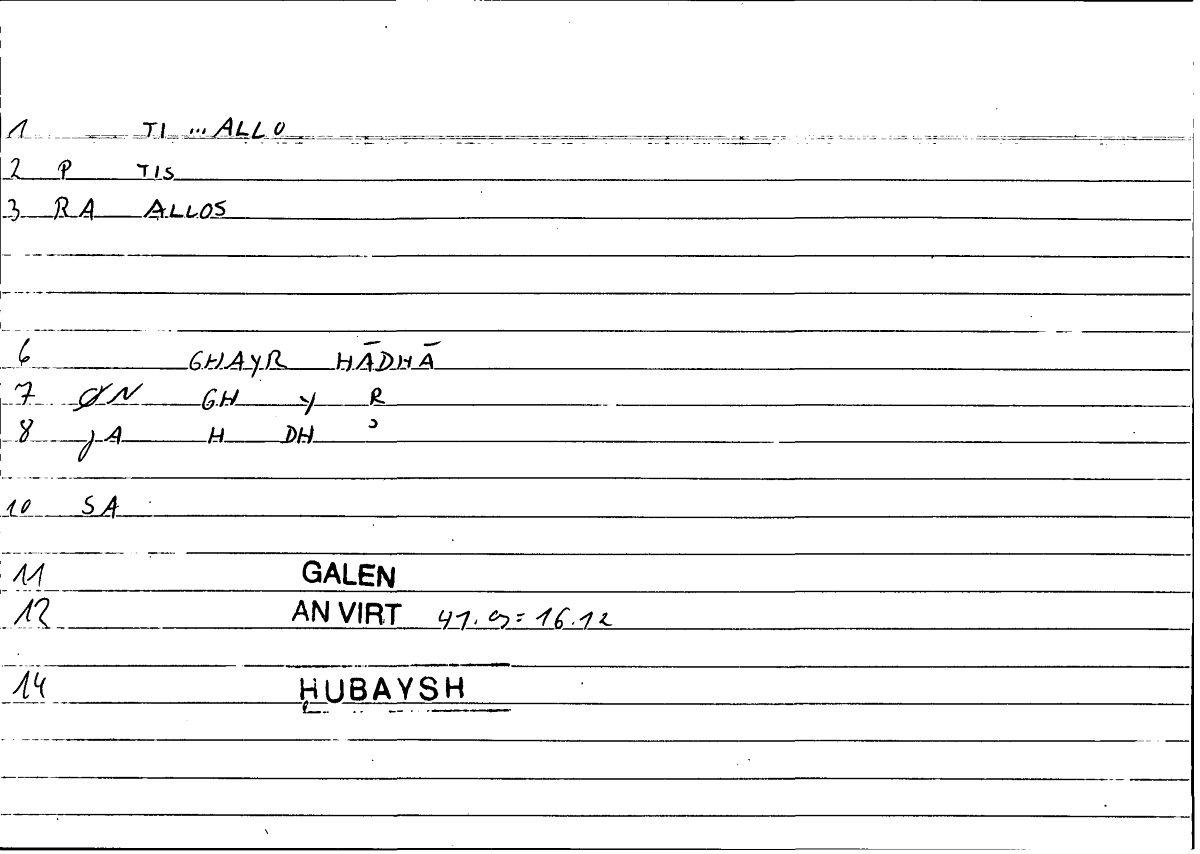 1 TI ... ALLO
2 P TIS
3 RA ALLOS
6 GHAYR HĀDHĀ
7 ØN GH Y R
8 jA H DH ʾ
10 SA
11 GALEN
12 AN VIRT 41.9=16.12
14 HUBAYSH